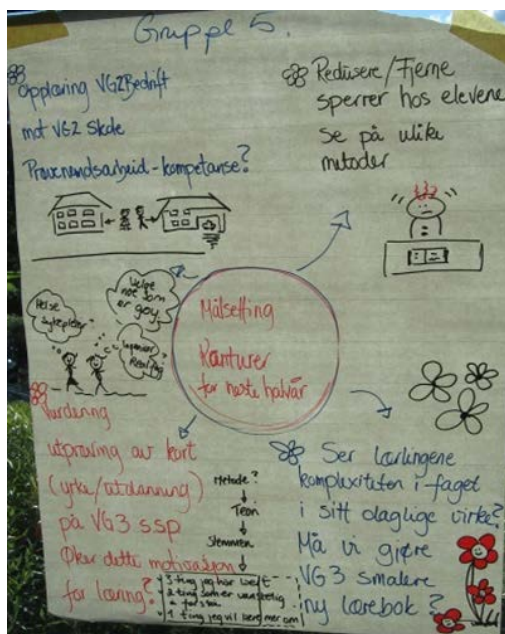 Gruppe 5.
Opplæring VG2 Bedrift
mot VG2 Skole
Prøvenendsarbeid - kompetanse?
Redusere/Fjerne
sperrer hos elevene
Se på ulike
metoder
Velge
noe som
er gøy
Helse
Sykepleier
Ingeniør
Realfag
Målsetting
Konturer
for neste halvår
Vurdering
utprøving av kort
(yrke/utdanning)
på VG3 SSP
Øker dette motivasjon
for læring?
Metode?
Teori
Stemmen
3 ting jeg har lært
2 ting som er vanskelig
å forstå
1 ting jeg vil lære mer om
Ser lærlingene
kompleksiteten i faget
i sitt daglige virke?
Må vi gjøre
VG3 smalere
ny lærebok?